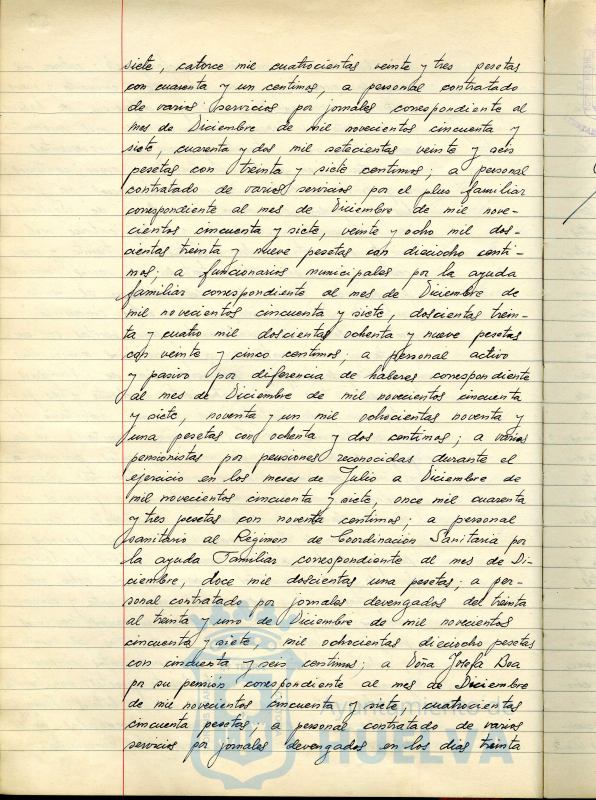 siete, catorce mil cuatrocientas veinte y tres pesetas
con cuarenta y un centimos, a personal contratado
de varios servicios por jornales correspondiente al
mes de Diciembre de mil novecientos cincuenta y
siete, cuarenta y dos mil setecientas veinte y seis
pesetas con treinta y siete centimos; a personal
contratado de varios servicios por el plus familiar
correspondiente al mes de Diciembre de mil nove-
cientos cincuenta y siete, veinte y ocho mil dos-
cientas treinta y nueve pesetas con dieciocho centi-
mos; a funcionarios municipales por la ayuda
familiar correspondiente al mes de Diciembre de
mil novecientos cincuenta y siete, doscientas trein-
ta y cuatro mil doscientas ochenta y nueve pesetas
con veinte y cinco centimos; a personal activo
y pasivo por diferencia de haberes correspondiente
al mes de Diciembre de mil novecientos cincuenta
y siete, noventa y un mil ochocientas noventa y
una pesetas con ochenta y dos centimos; a varios
pensionistas por pensiones reconocidas durante el
ejercicio en los meses de Julio a Diciembre de
mil novecientos cincuenta y siete, once mil cuarenta
y tres pesetas con noventa centimos; a personal
sanitario al Régimen de Coordinación Sanitaria por
la ayuda Familiar correspondiente al mes de Di-
ciembre, doce mil doscientas una pesetas; a per-
sonal contratado por jornales devengados del treinta
al treinta y uno de Diciembre de mil novecientos
cincuenta y siete, mil ochocientas dieciocho pesetas
con cincuenta y seis centimos; a Doña Josefa Bea
por su pensión correspondiente al mes de Diciembre
de mil novecientos cincuenta y siete cuatrocientas
cincuenta pesetas; a personal contratado de varios
servicios por jornales devengados en los dias treinta
HUELVA